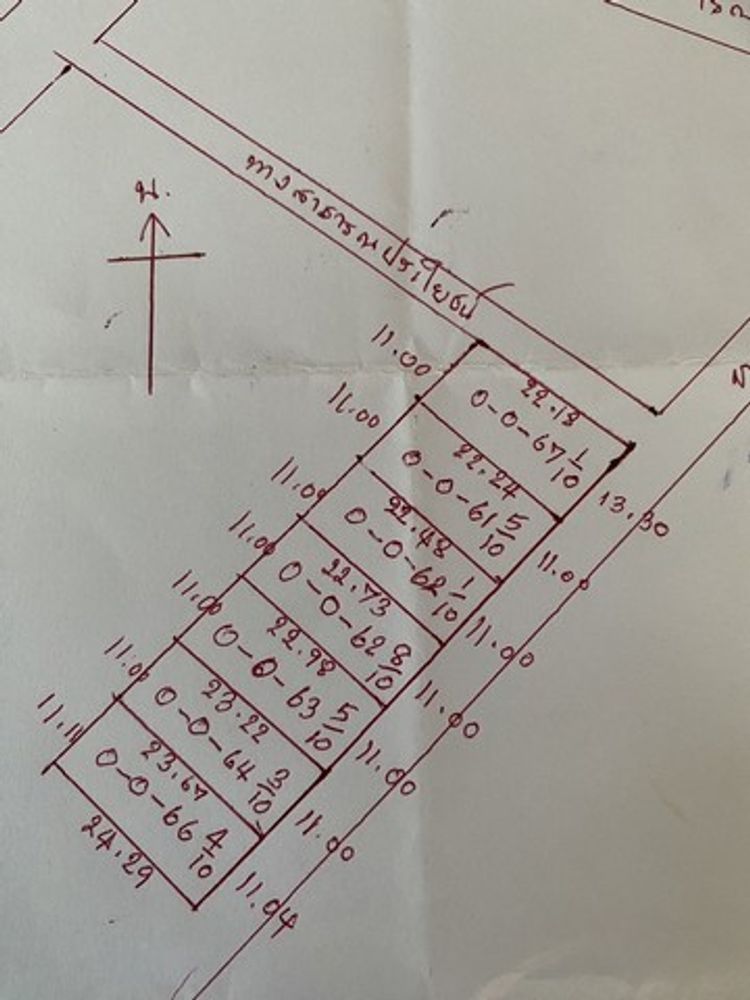 น.
ทางสาธารณประโยชน์
11.00
22.13
0-0-67 1/10
13.30
11.00
22.24
0-0-61 5/10
11.00
11.00
22.48
0-0-62 1/10
11.00
11.00
22.73
0-0-62 8/10
11.00
11.00
22.98
0-0-63 5/10
11.00
11.00
23.22
0-0-64 3/10
11.00
11.11
23.67
0-0-66 4/10
11.04
24.29